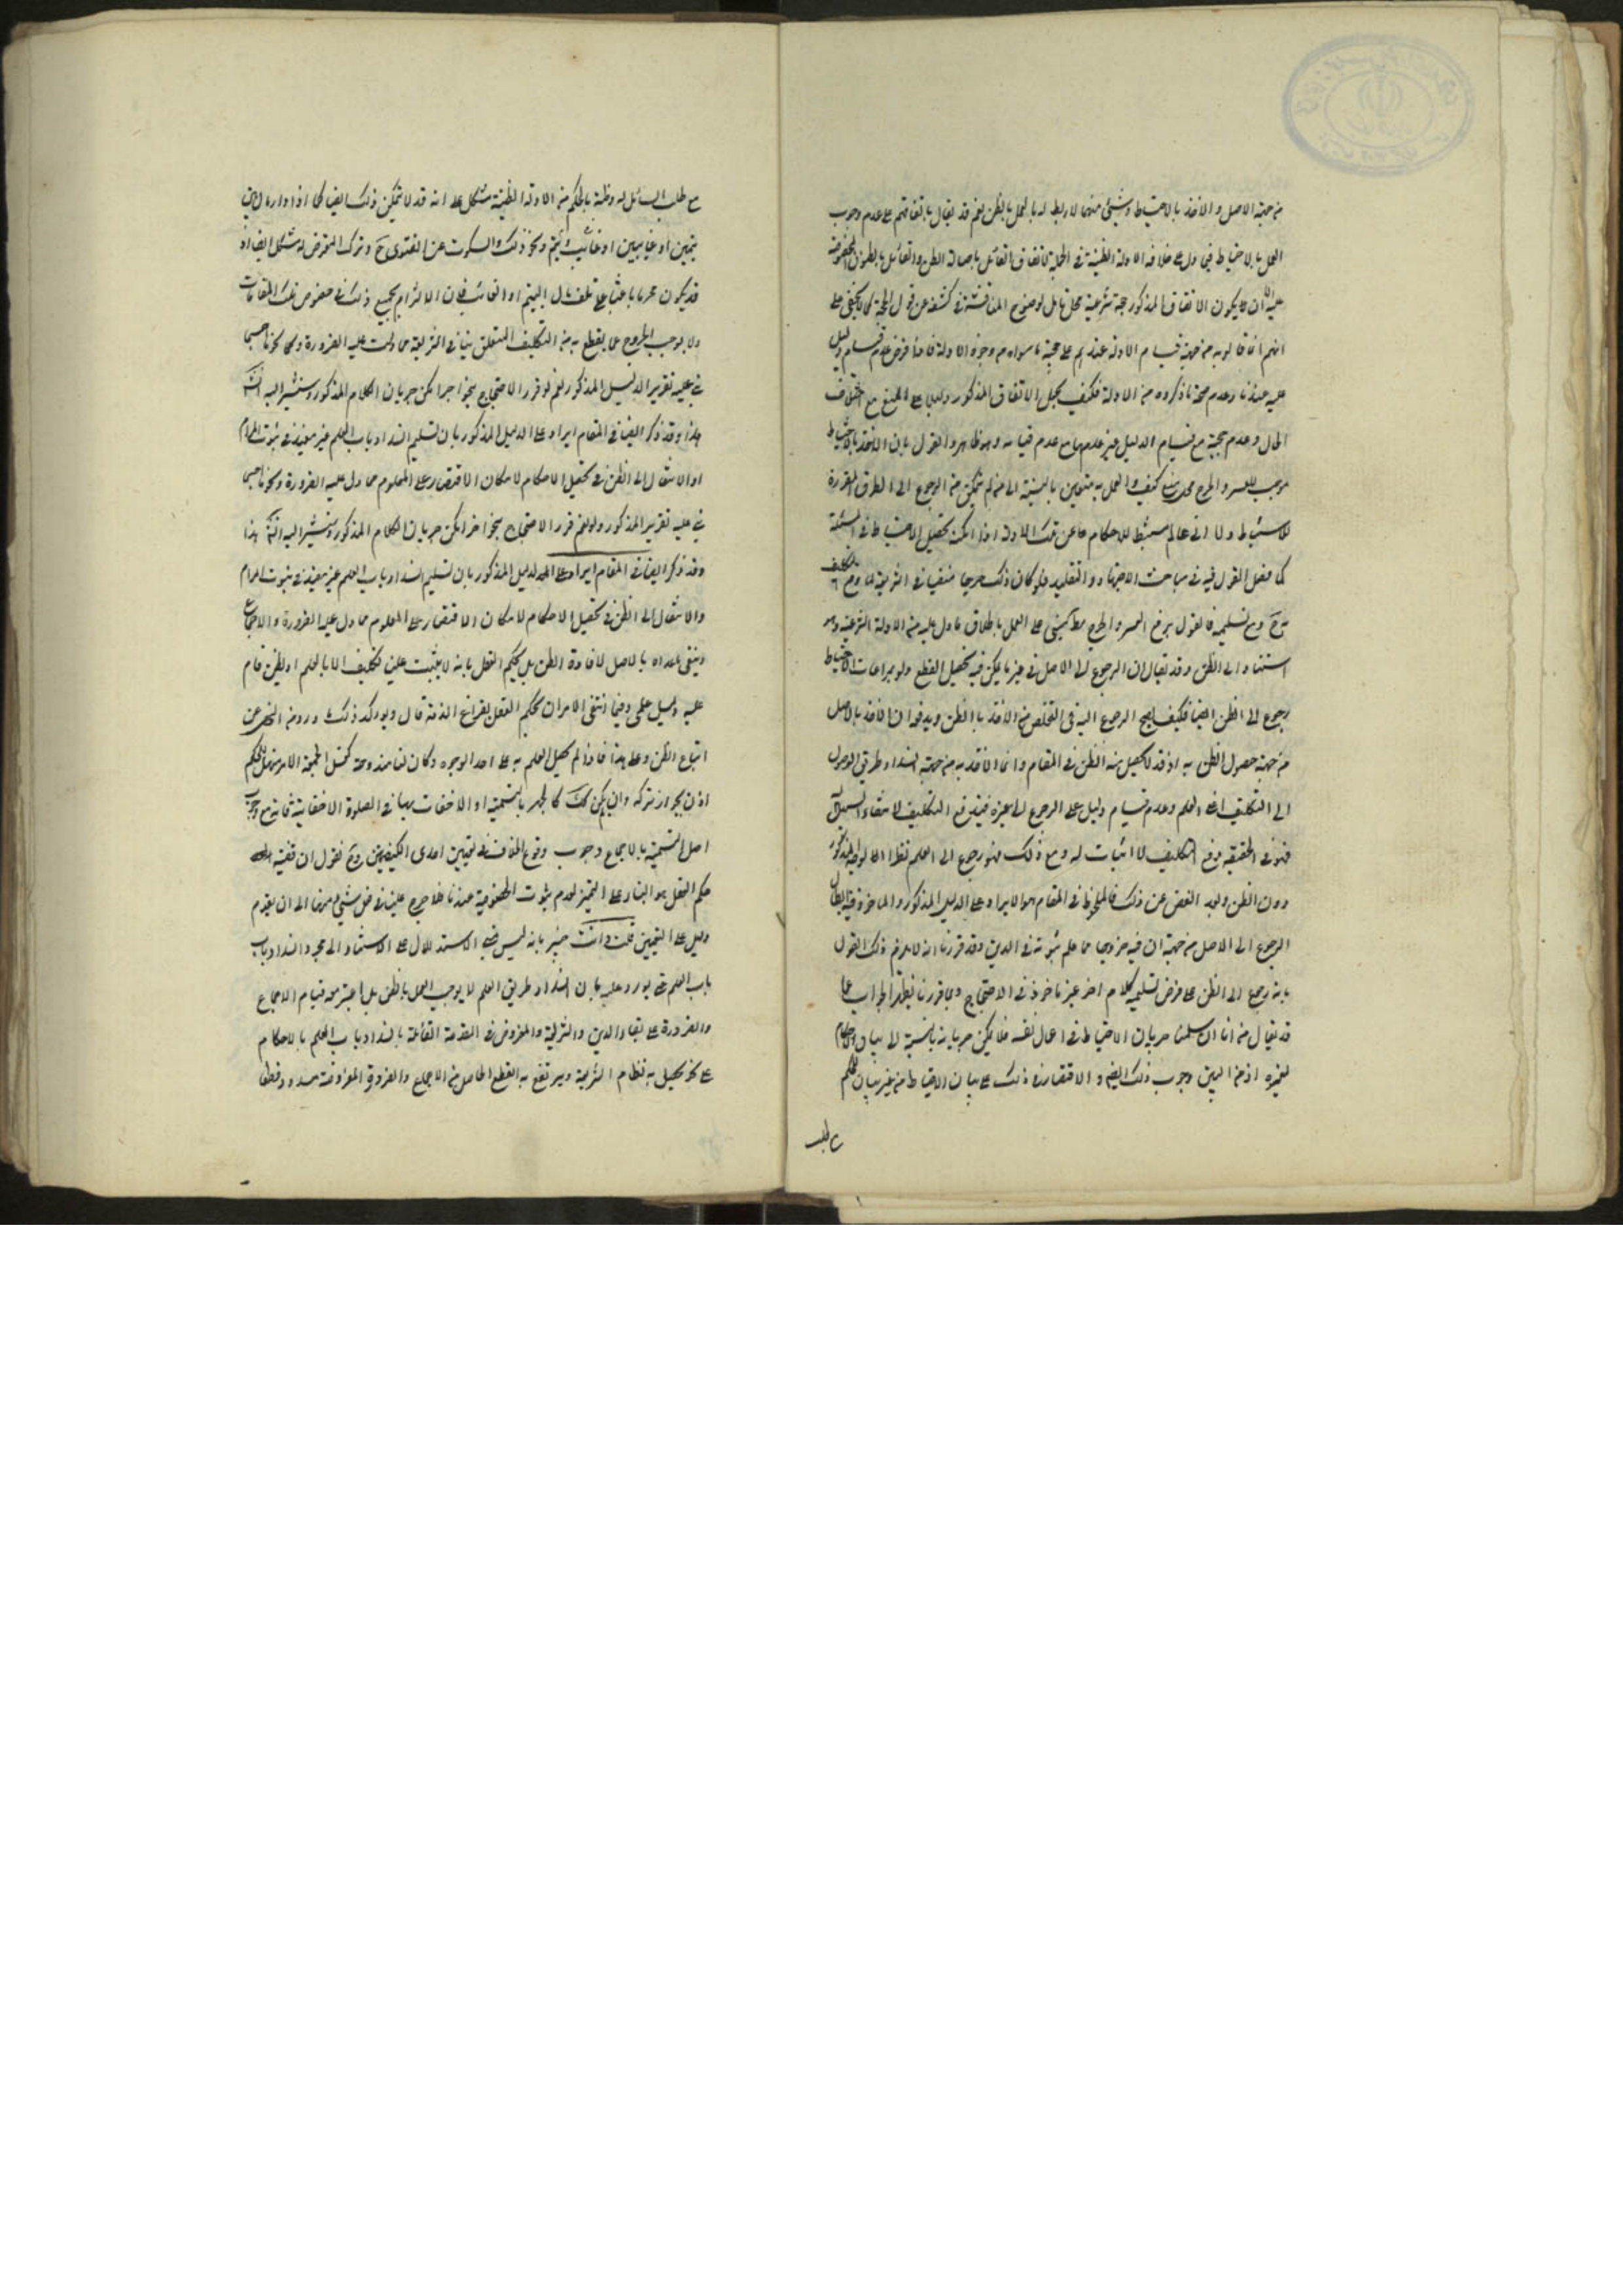 من جهة الاصل و الاخذ بالاحتياط و شيئ منهما لا ربط له بالعمل بالظن نعم قد يقال باتفاقهم على عدم وجوب
العمل بالاحتياط فيما دل على خلافه الادلة الظنية في الجملة لاتفاق القائل باصالة الظن و القائل بالظنون المخصوصة
عليه ان يكون الاتفاق المذكور حجة شرعية محل تامل لوضوح المناقشة في كشفه عن قول الحجة كما لا يخفى على
انهم انما قالوا به من جهة قيام الادلة عندهم على حجية ما سواه من وجوه الادلة فاذا فرض عدم قيام دليل
عليه عندنا و عدم صحة ما ذكروه من الادلة فكيف يجعل الاتفاق المذكور دليلا على المنع مع اختلاف
الحال و عدم حجية مع قيام الدليل غير عدمها مع عدم قيامه و هو ظاهر و القول بان الاخذ بالاحتياط
موجب للعسر و الحرج محل منع كيف و العمل به متعين بالنسبة الى من لم يتمكن من الرجوع الى الطرق المقررة
للاستنباط و لا الى عالم مستنبط للاحكام عن تلك الادلة اذا امكن تحصيل الاحتياط في المسئلة
كما فصل القول فيه في مباحث الاجتهاد و التقليد فلو كان ذلك حرجا منفيا في الشريعة لما وقع التكليف
به ح و مع تسليمه فالقول برفع العسر و الحرج مط مبنى على العمل باطلاق ما دل عليه من الادلة الشرعية و هو
استناد الى الظن و قد يقال ان الرجوع الى الاصل في غير ما يمكن فيه تحصيل القطع و لو بمراعات الاحتياط
رجوع الى الظن ايضا فكيف يصح الرجوع اليه في التخلص من الاخذ بالظن و يدفعه ان الاخذ بالاصل
من جهة حصول الظن به اذ قد لا يحصل منه الظن في المقام و انما الاخذ به من جهة انسداد طريق الوصول
الى التكليف اعنى العلم و عدم قيام دليل على الرجوع الى غيره فيندفع التكليف لانتفاء السبيل
فهو في الحقيقة دفع التكليف لا اثبات له و مع ذلك فهو رجوع الى العلم نظرا الى الوجه المذكور
دون الظن و بعد الغض عن ذلك فالملحوظ في المقام هو الايراد على الدليل المذكور و الماخوذ فيه ابطال
الرجوع الى الاصل من جهة ان فيه خروجا عما علم ثبوته في الدين و قد قررنا انه لا يلزم ذلك القول
بانه رجوع الى الظن على فرض تسليمه كلام اخر غير ماخوذ في الاحتجاج و بما قررنا يظهر الجواب عما
قد يقال من انا ان سلمنا جريان الاحتياط في اعمال نفسه فلا يمكن جريانه بالنسبة الى بيان الاحكام
لغيره اذ من البين وجوب ذلك ايضا و الاقتصار في ذلك على بيان الاحتياط من غير بيان للحكم
مع طلب
مع طلب السائل له و ظنه بالحكم من الادلة الظنية مشكل على انه قد لا يمكن ذلك ايضا كما اذا دار المال بين
يتيمين او غائبين او غائب و يتيم و نحو ذلك و السكوت عن الفتوى ح و ترك التعرض له مشكل ايضا اذ
قد يكون محرما باعثا على تلف مال اليتيم او الغائب فان الالتزام بجميع ذلك في خصوص تلك المقامات
و لا يوجب الخروج عما يقطع به من التكليف المتعلق بنا في الشريعة مما دلت عليه الضرورة و نحوها حسبما
بنى عليه تقرير الدليل المذكور نعم لو قرر الاحتجاج بنحو اخر امكن جريان الكلام المذكور و سنشير اليه انشاء الله
هذا و قد ذكر ايضا في المقام ايراد على الدليل المذكور بان تسليم انسداد باب العلم غير مفيد في ثبوت المرام
او الانتقال الى الظن في تحصيل الاحكام لامكان الاقتصار على المعلوم مما دل عليه الضرورة و نحوها حسبما
بنى عليه تقرير المذكور و لو نعم قرر الاحتجاج بنحو اخر امكن جريان الكلام المذكور و سنشير اليه انشاء الله هذا
و قد ذكر ايضا في المقام ايراد على الدليل المذكور بان تسليم انسداد باب العلم غير مفيد في ثبوت المرام
و الانتقال الى الظن في تحصيل الاحكام لامكان الاقتصار على المعلوم مما دل عليه الضرورة و الاجماع
و ينفى ما عداه بالاصل لا لافادة الظن بل لحكم العقل بانه لا يثبت علينا تكليف الا بالعلم او بظن قام
عليه دليل علمى و فيما انتفى الامران يحكم العقل بفراغ الذمة قال و يؤكد ذلك ورود النهى عن
اتباع الظن و على هذا فاذا لم يحصل العلم به على احد الوجوه و كان لنا مندوحة كغسل الجمعة الامر سهل للحكم
اذن بجواز تركه و ان لم يكن كك كالجهر بالتسمية او الاخفات بها في الصلوة الاخفاتية فانه مع وجوب
اصل التسمية بالاجماع وقوع الخلاف في تعيين احدى الكيفيتين و ح نقول ان قضية
حكم العقل هو البناء على التخيير لعدم ثبوت الخصوصية عندنا فلا حرج علينا في فعل شيئ منهما الى ان يقوم
دليل على التعيين قلت و انت خبير بانه ليس مبنى الاستدلال على الاستناد الى مجرد انسداد باب
باب العلم حتى يورد عليه بان انسداد طريق العلم لا يوجب العمل بالظن بل اعتبر معه قيام الاجماع
و الضرورة على بقاء الدين و الشريعة و المفروض في المقدمة القائلة بانسداد باب العلم بالاحكام
على نحو يحصل به نظام الشريعة و يرتفع به القطع الحاصل من الاجماع و الضرورة المفروضة مسدود قطعا